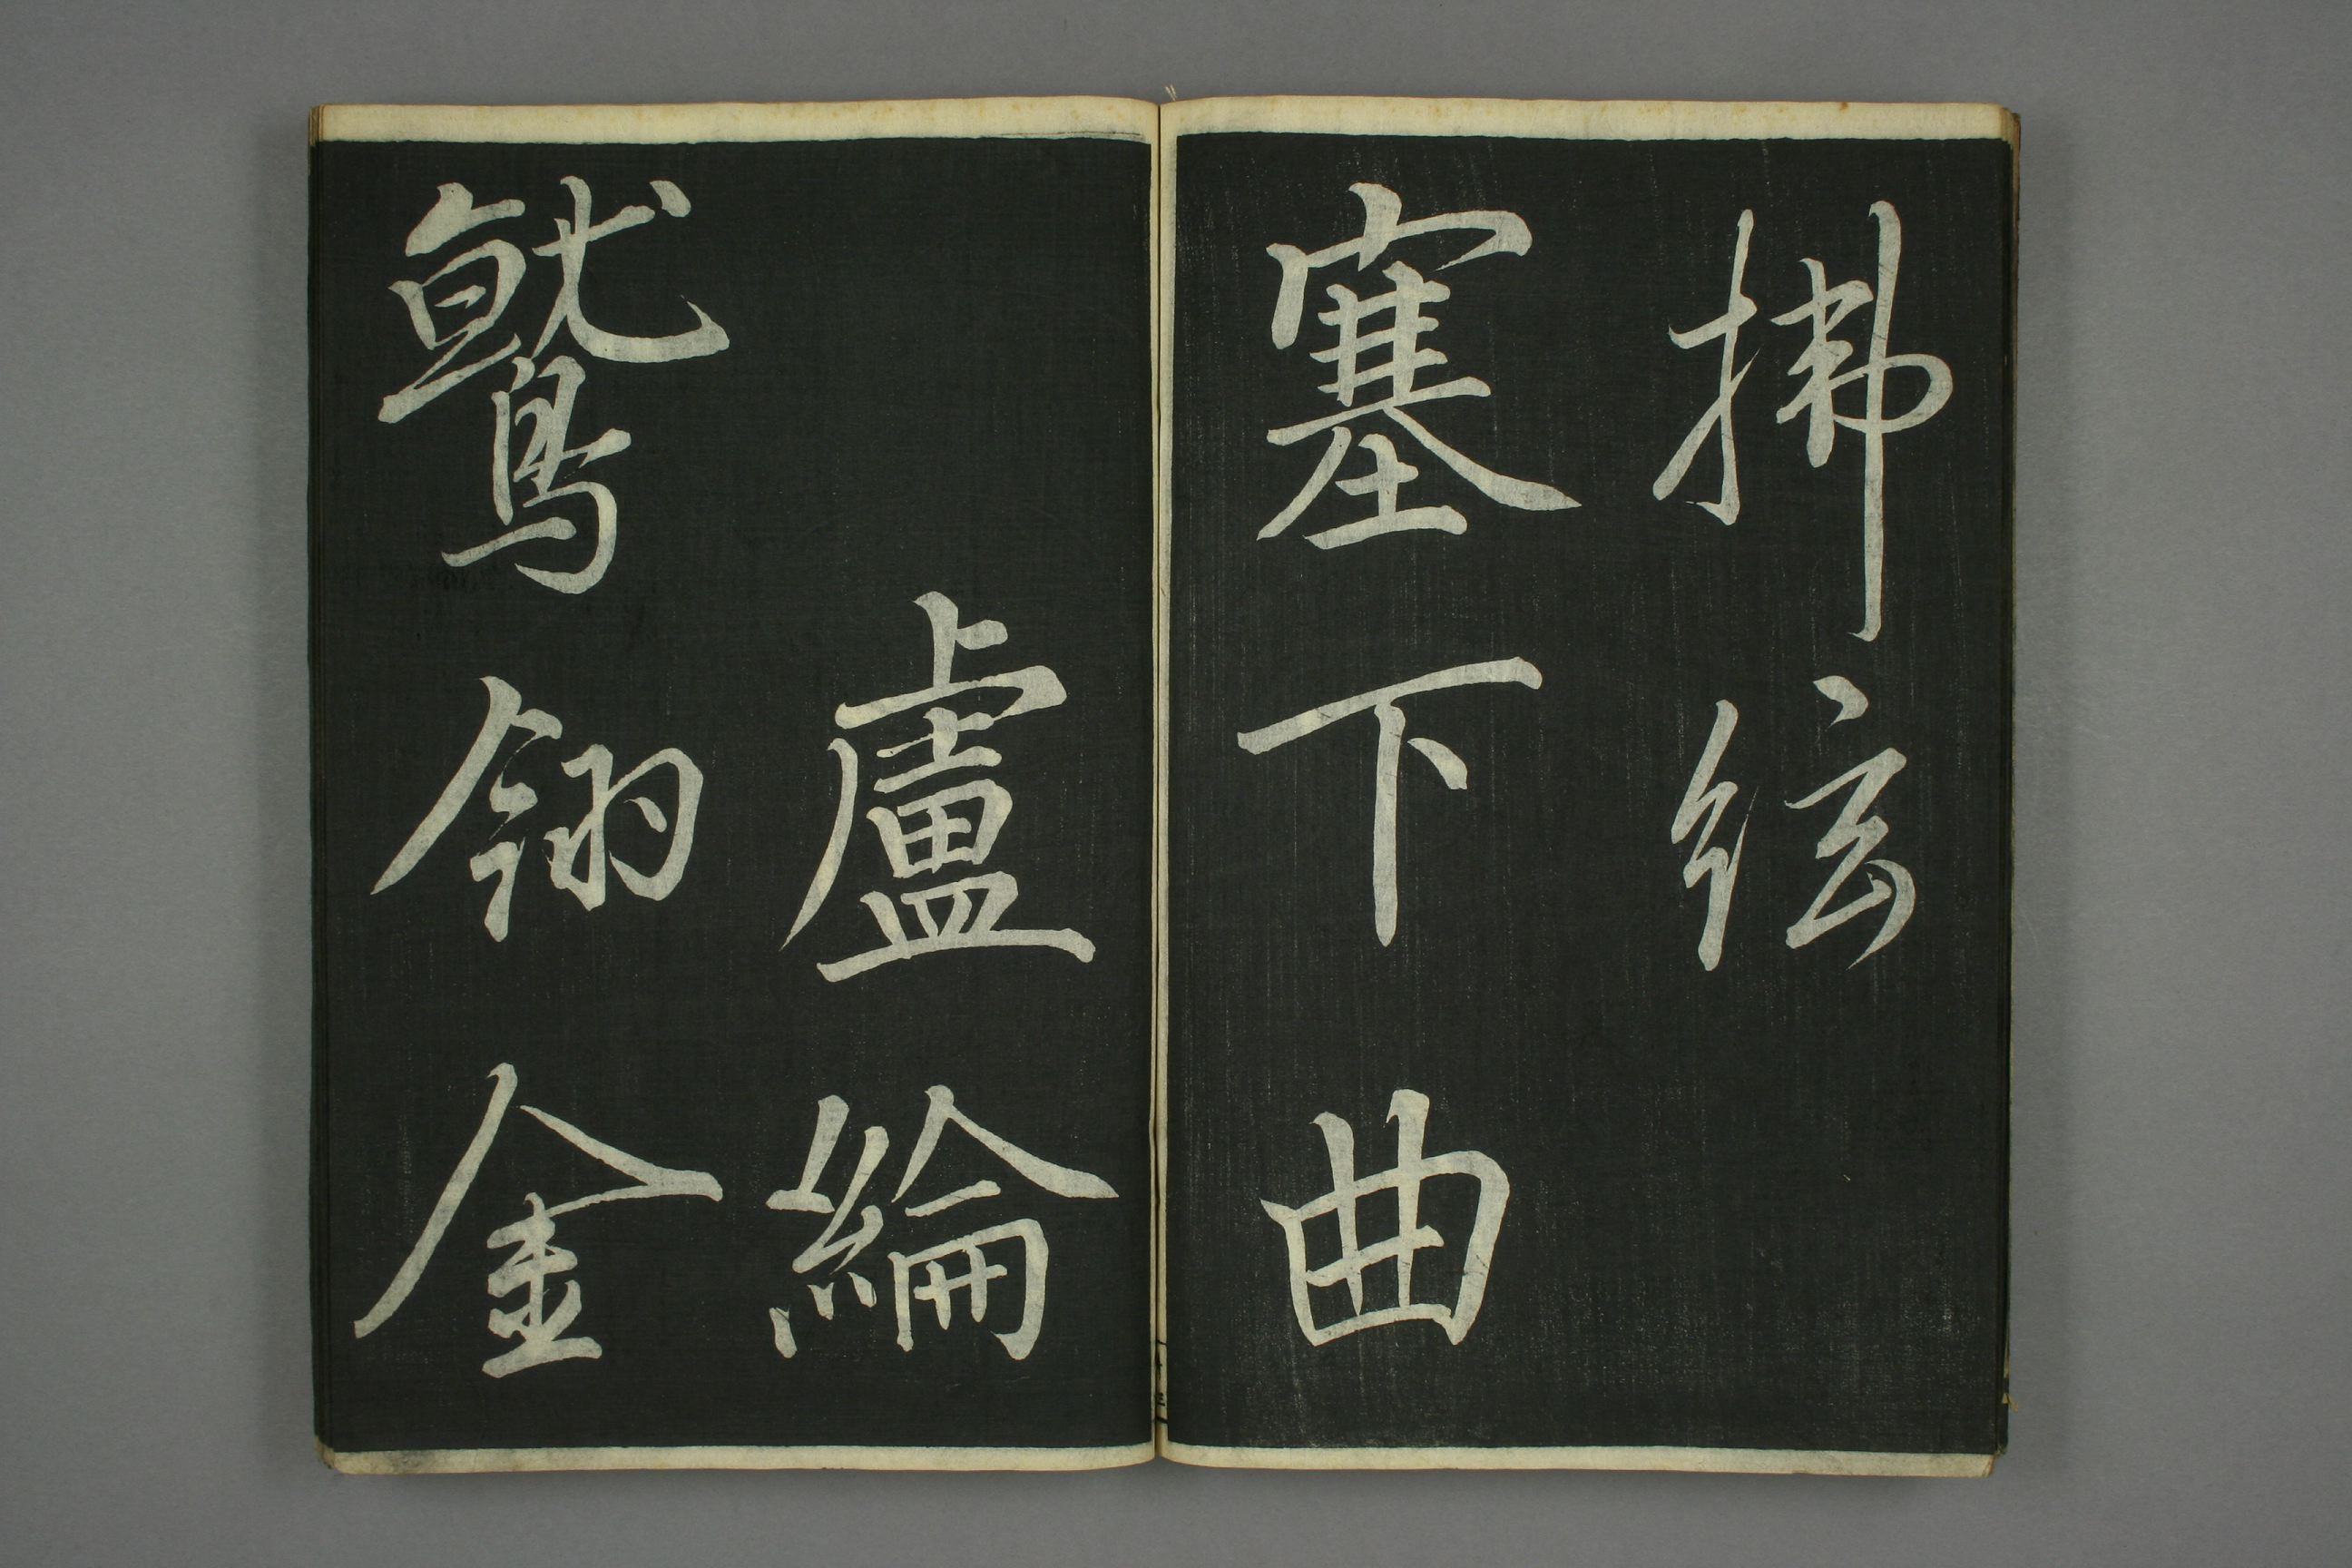 拂絃
塞下曲
盧綸
鷲翎金